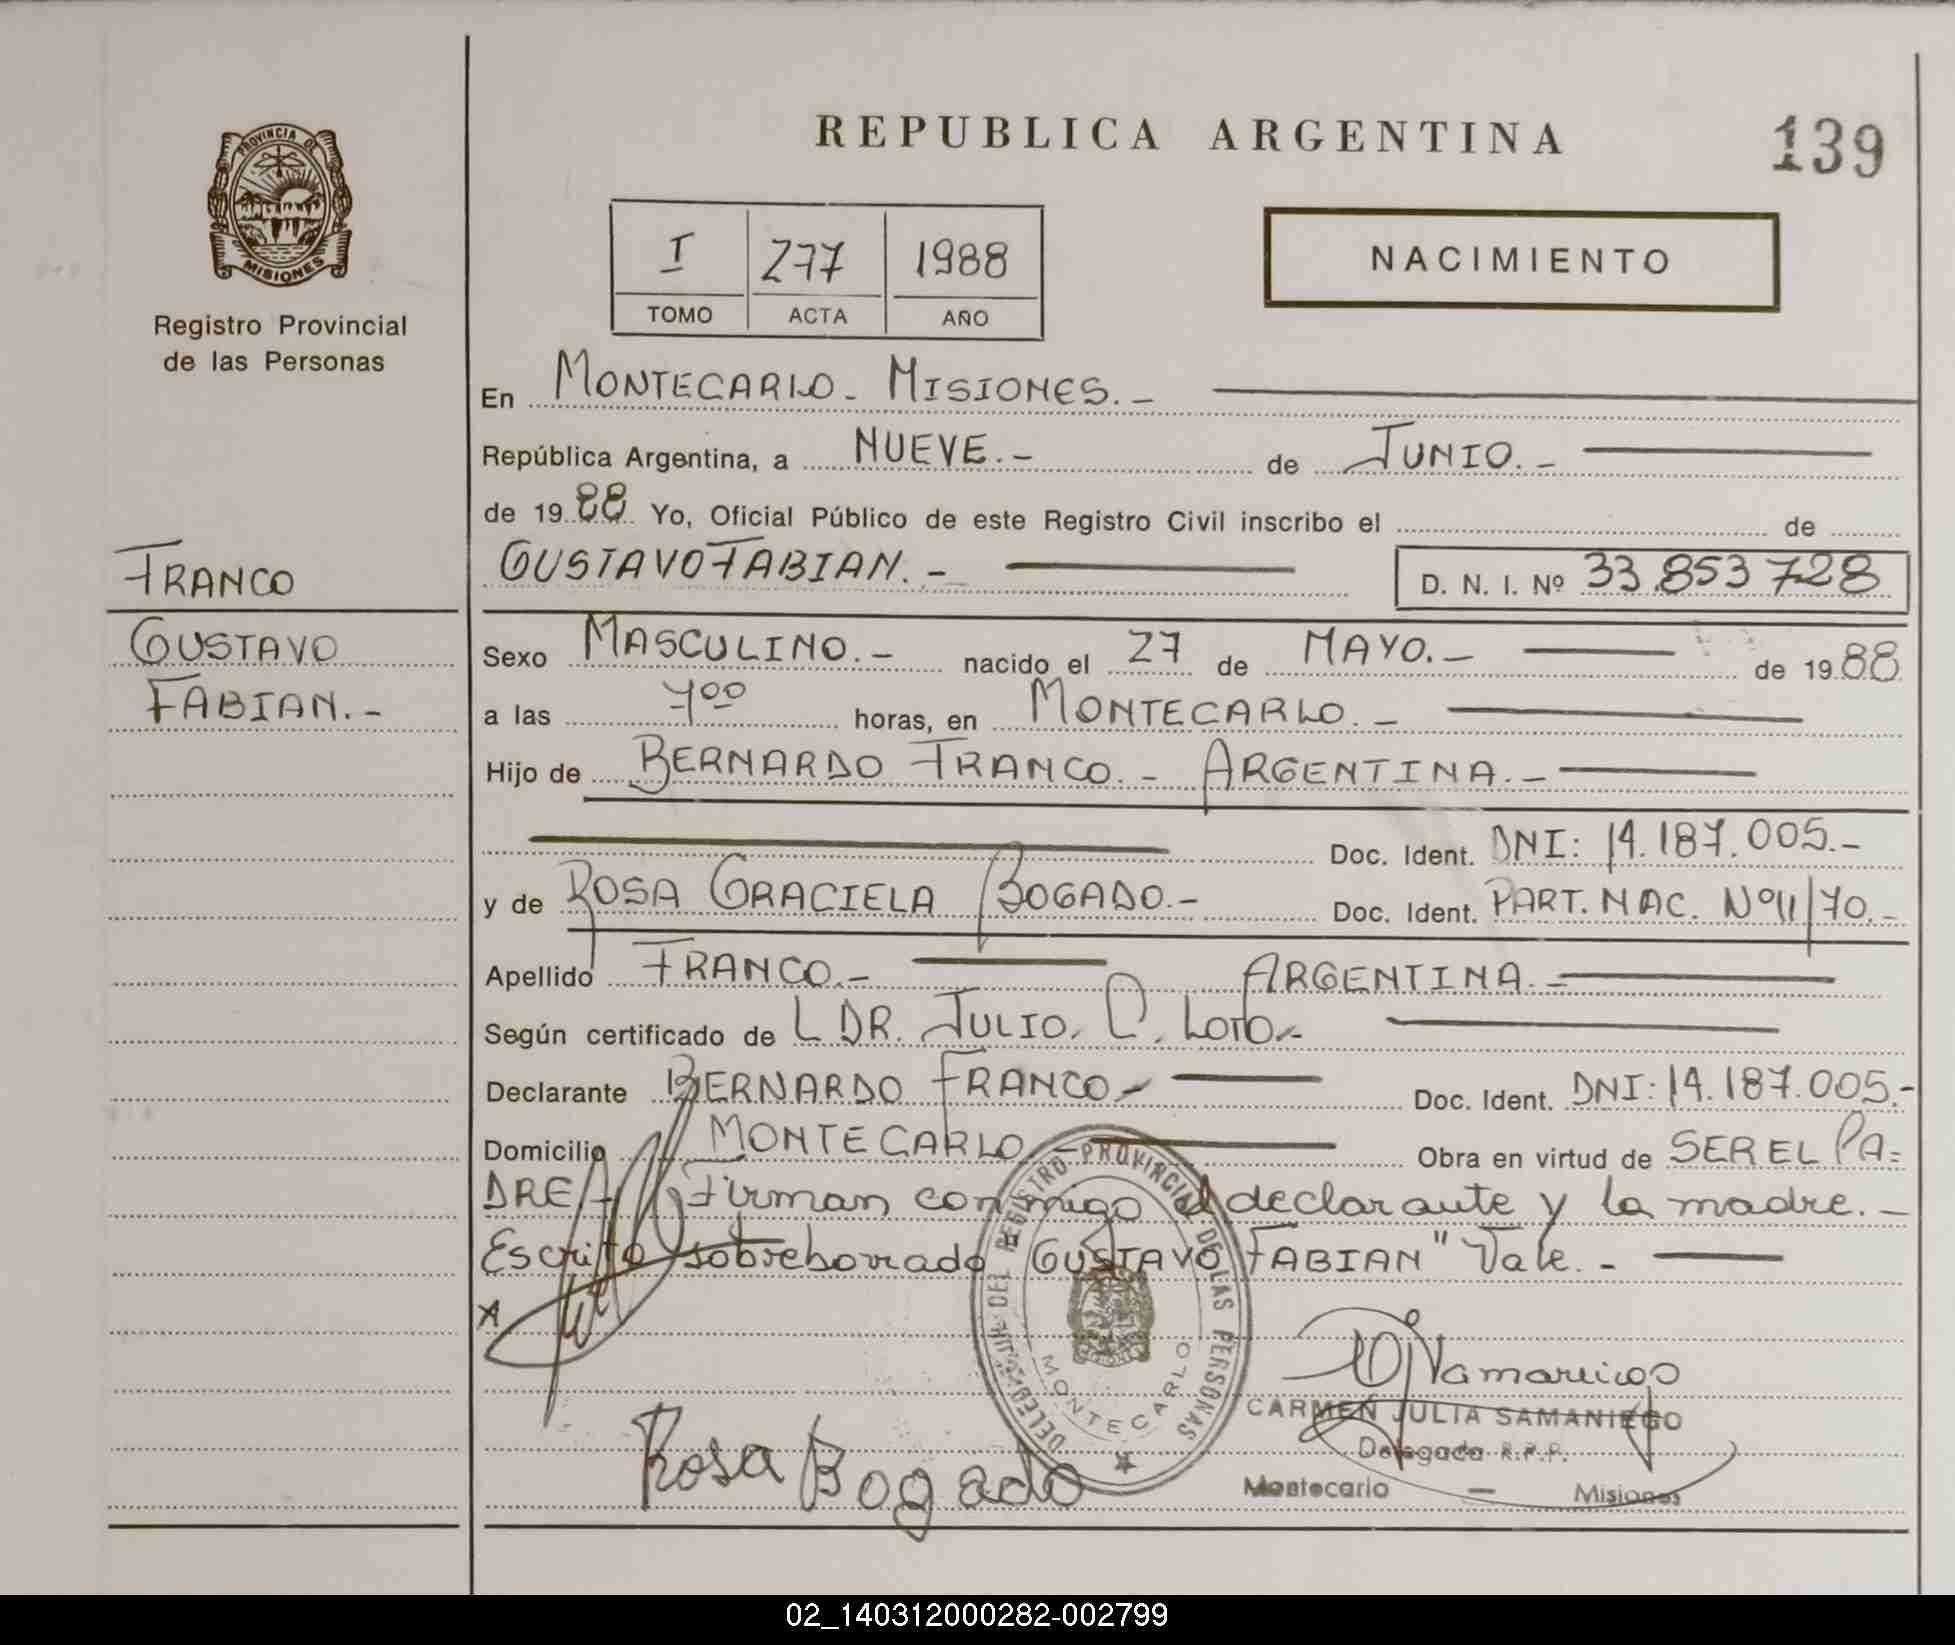 PROVINCIA DE
MISIONES
Registro Provincial
de las Personas
FRANCO
GUSTAVO
FABIAN.-
REPUBLICA ARGENTINA
139
I 277 1988
TOMO ACTA AÑO
NACIMIENTO
En MONTECARLO - MISIONES.-
República Argentina, a NUEVE.- de JUNIO.-
de 1988 Yo, Oficial Público de este Registro Civil inscribo el de
GUSTAVO FABIAN.- D. N. I. Nº 33.853728
Sexo MASCULINO.- nacido el 27 de MAYO.- de 1988
a las 400 horas, en MONTECARLO.-
Hijo de BERNARDO FRANCO.- ARGENTINA.-
Doc. Ident. DNI: 14.187.005.-
y de ROSA GRACIELA BOGADO.- Doc. Ident. PART. NAC. Nº11/70.-
Apellido FRANCO.- ARGENTINA.-
Según certificado de L DR. JULIO. C. LOTO.-
Declarante BERNARDO FRANCO- Doc. Ident. DNI: 14.187.005.-
Domicilio MONTECARLO - Obra en virtud de SER EL PA=
DRE.- Firman conmigo el declarante y la madre.-
Escrito sobreborrado GUSTAVO FABIAN" Vale.-
X
DELEGACION DEL REGISTRO PROVINCIAL DE LAS PERSONAS
MONTECARLO
Rosa Bogado
CARMEN JULIA SAMANIEGO
Delegada R.P.P.
Montecarlo — Misiones
02_140312000282-002799